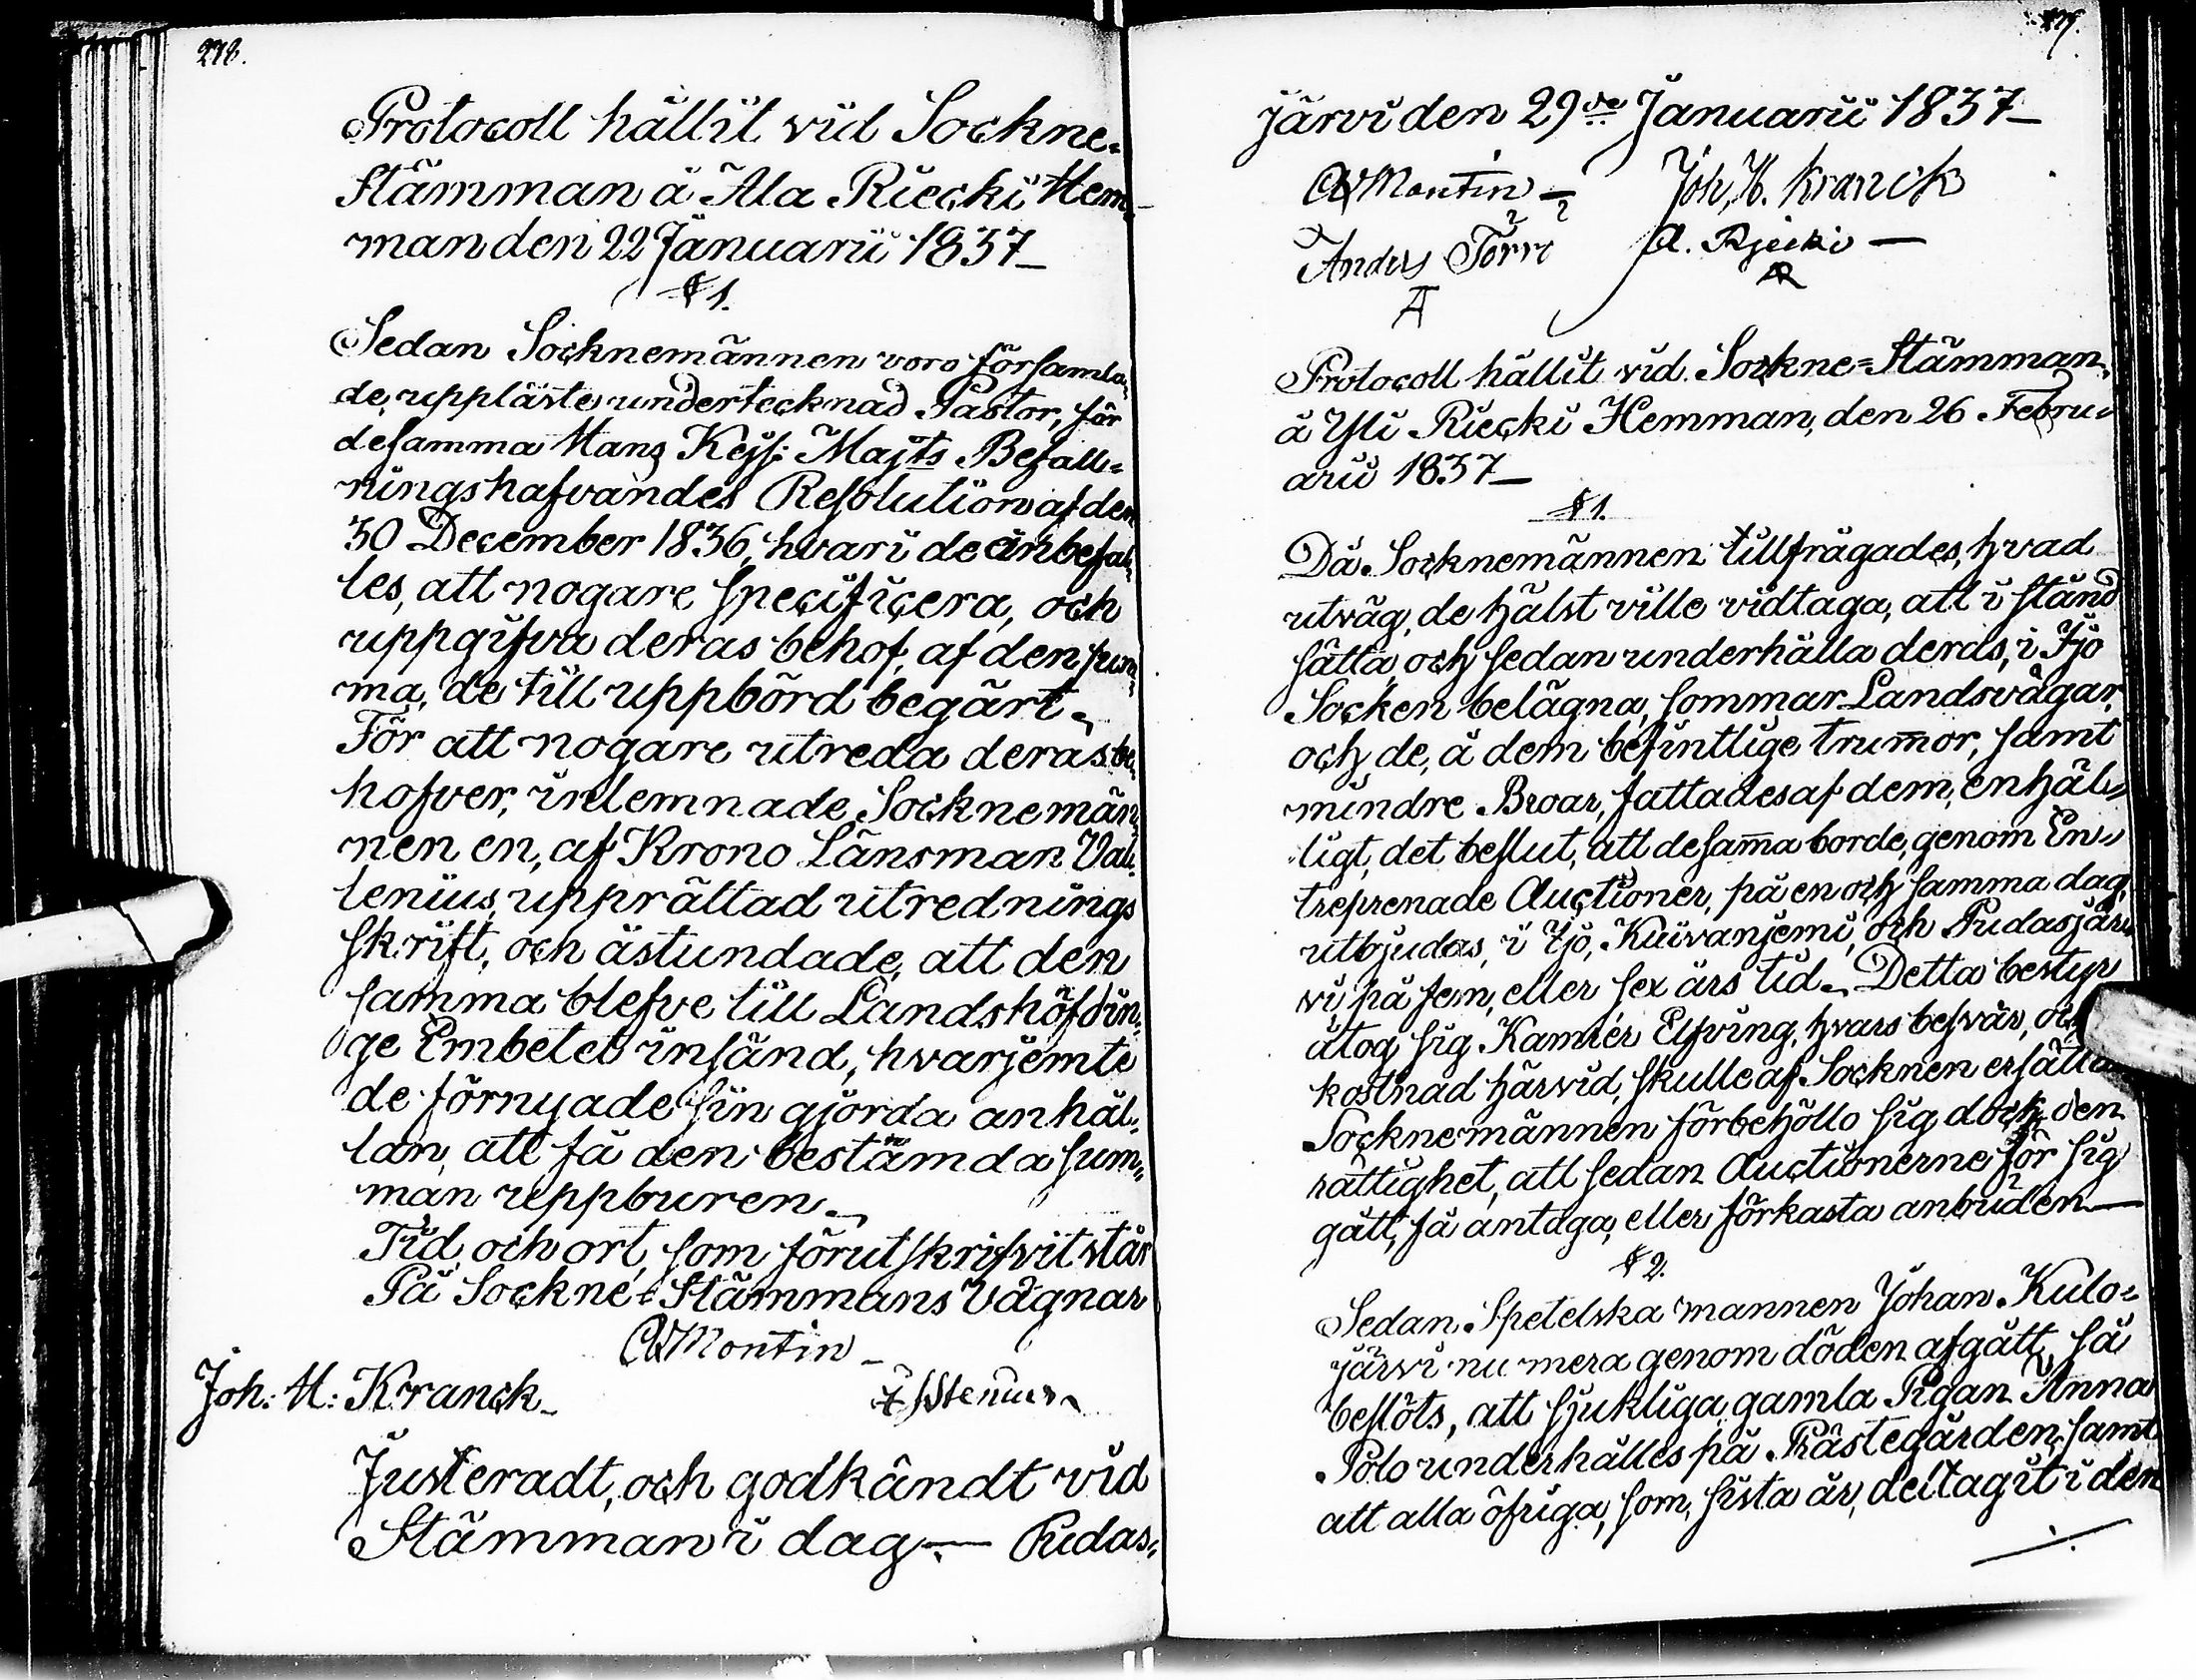 278.
Protocoll hållit vid Sockne-
Stämman å Ala Riecki Hem-
man den 22 Januarii 1837_
§ 1.
Sedan Socknemännen voro församla-
de, uppläste undertecknad Pastor, för
desamma Hans Kejs: Majts Befall-
ningshafvandes Resolution af den
30 December 1836, hvari de anbefal-
les, att nogare specificera, och
uppgifva deras behof, af den sum-
ma, de till uppbörd begärt_
För att nogare utreda deras be-
hofver, inlemnade Socknemän-
nen en, af Krono Länsman Val-
lenius, upprättad utrednings
skrift, och åstundade, att den
samma blefve till Landshöfdin-
ge Embetet insänd, hvarjemte
de förnyade sin gjorda anhål-
lan, att få den bestämda sum-
man uppburen_
Tid, och ort, som förut skrifvit står
På Sockne-Stämmans Vägnar
CW Montin_
Joh: H: Kranck_
Justeradt, och godkändt vid
Stämman i dag— Pudas-
järvi den 29de Januarii 1837_
CW Montin — Joh, H. Kranck
Anders Törrö A. Rjecki —
A AR
Protocoll hållit vid Sockne-Stämman
å Yli Riecki Hemman, den 26 Febru-
arii 1837_
§ 1.
Då Socknemännen tillfrågades, hvad
utväg, de hälst ville vidtaga, att i stånd
sätta, och sedan underhålla deras, i Ijo
Socken belägna, sommar Landsvägar,
och de, å dem befintlige trummor, samt
mindre Broar, fattades af dem, enhäl-
ligt, det beslut, att desamma borde, genom En-
treprenade Auctioner, på en och samma dag,
utbjudas, i Ijo, Kuivaniemi, och Pudasjär-
vi, på fem, eller sex års tid_ Detta bestyr
åtog sig Kamrer Elfving, hvars besvär, och
kostnad härvid, skulle af Socknen ersättas
Socknemännen förbehöllo sig dock den
rättighet, att sedan Auctionerne för sig
gått, få antaga, eller förkasta anbuden—
§ 2.
Sedan Spetelska mannen Johan Kulo-
järvi nu mera genom döden afgått, så
beslöts, att sjukliga, gamla Pigan Anna
Polo underhålles på Prästegården, samt
att alla öfriga, som, sista år, deltagit i den